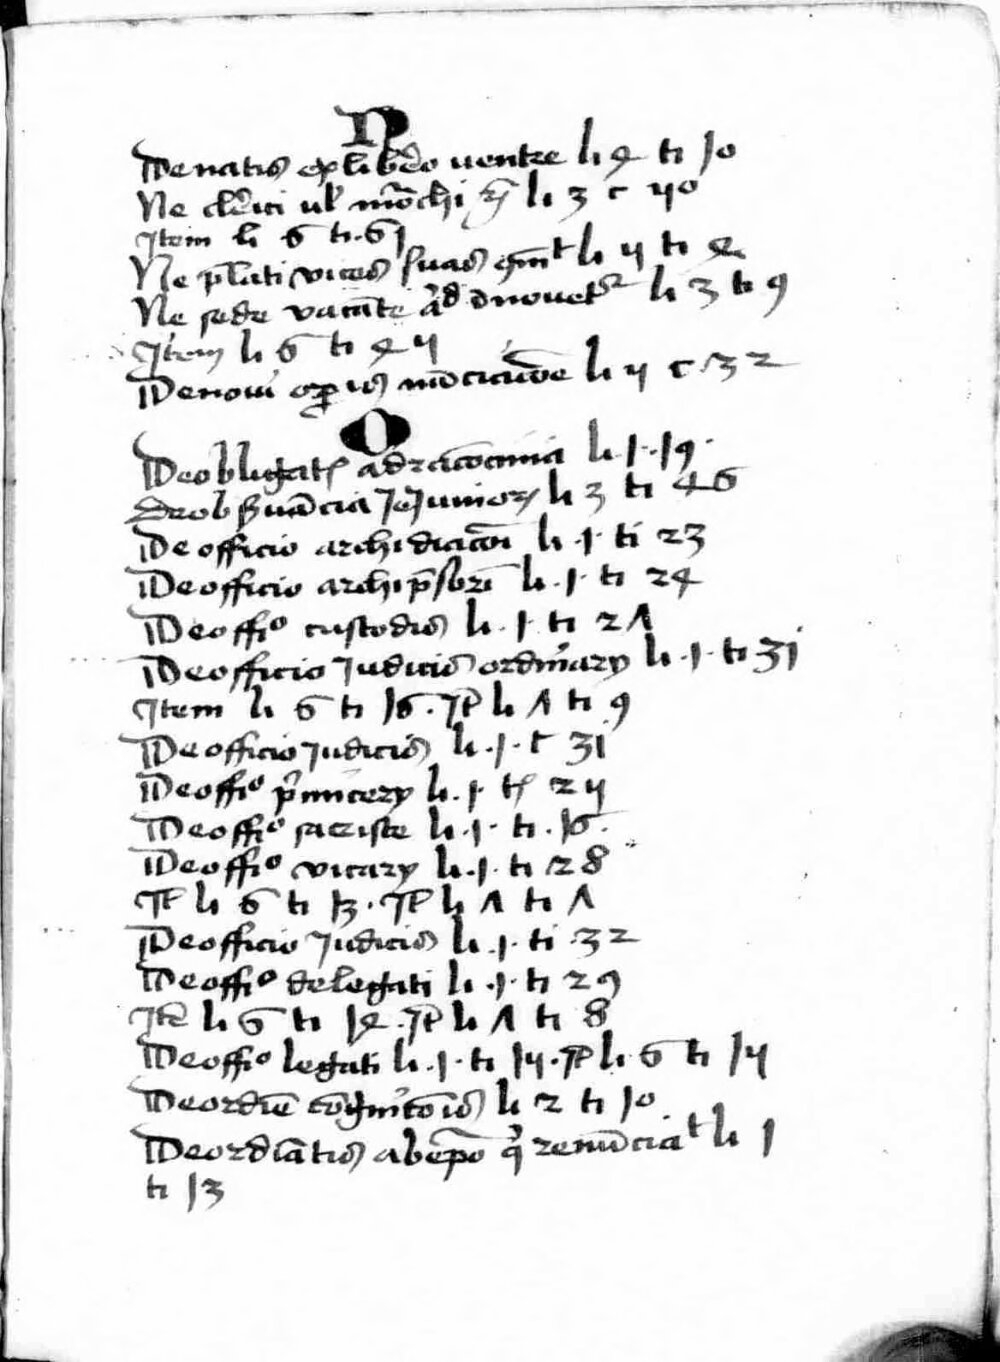 N
De natis ex libero ventre li 4 ti 10
Ne clerici vel monachi li 3 t 50
Item li 6 ti 61
Ne prelati vices suas li 5 ti 4
Ne sede vacante li 3 ti 9
Item li 6 ti
De novi operis nunciacione li 5 t 32
O
De obligatis ad raciocinia li 1 19
De observancia Jejuniorum li 3 ti 46
De officio archidiaconi li 1 ti 23
De officio archipresbiteri li 1 ti 24
De offio custodis li 1 ti 27
De officio Judicis ordinarij li 1 ti 31
Item li 6 ti 16 It li 7 ti 9
De officio Judicis li 1 t 31
De offio primicerij li 1 ti 25
De offio sacriste li 1 ti 16
De offio vicarij li 1 ti 28
It li 6 ti 13 It li 7 ti 7
De officio Judicis li 1 ti 32
De offio delegati li 1 ti 29
Ite li 6 ti 14 It li 7 ti 8
De offio legati li 1 ti 15 It li 6 ti 15
De ordine cognicionis li 2 ti 10
De ordinatis ab episcopo qui renunciat li 1
ti 13